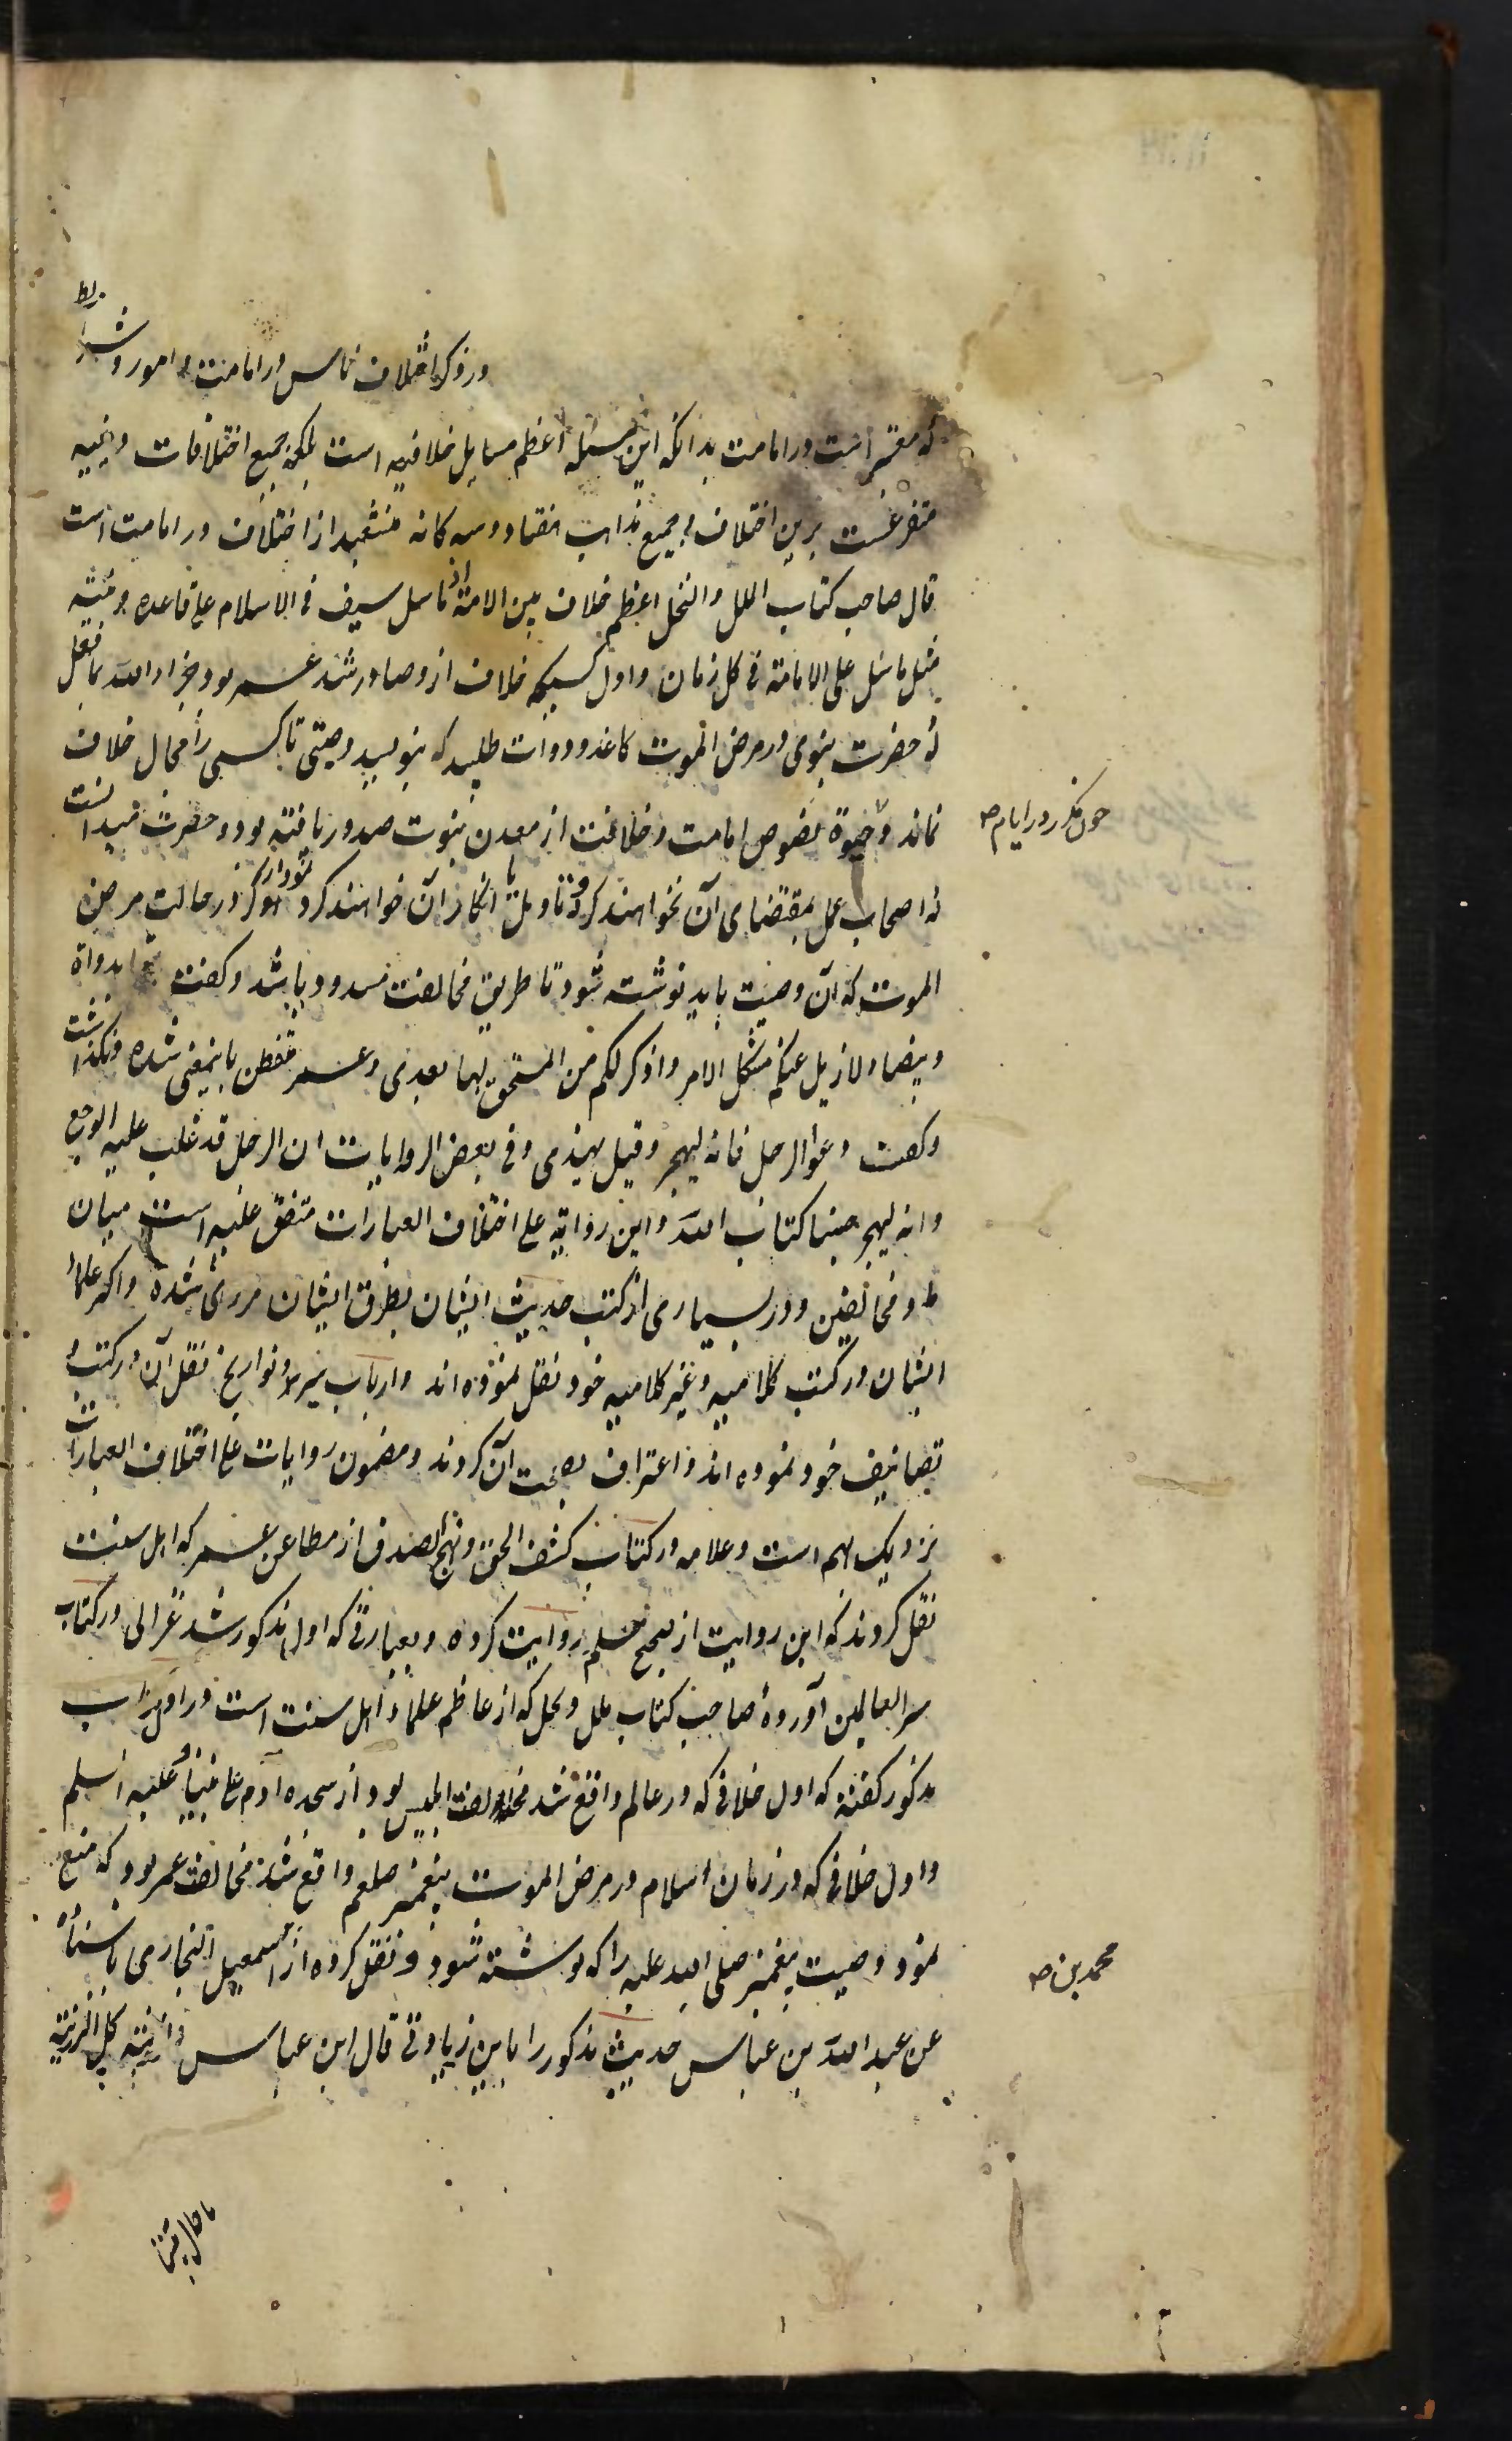 در ذکر اختلاف ناس در امامت و امور و شرایط
که معتبر است در امامت بدانکه این مسئله اعظم مسایل خلافیه است بلکه جمیع اختلافات دینیه
متفرعست برین اختلاف و جمیع مذاهب هفتاد و سه کانه منشعبد از اختلاف در امامت است
قال صاحب کتاب الملل والنحل اعظم خلاف بین الامة اذ ماسل سیف فی الاسلام علی قاعده دینیه
مثل ماسل علی الامامة فی کل زمان و اول کسیکه خلاف ازو صادر شد عمر بود جزاه الله بما فعل
که حضرت نبوی در مرض الموت کاغذ و دوات طلبید که بنویسد وصیتی تا کسی را مجال خلاف
نماند چون مکرر در ایام حیوة نصوص امامت و خلافت از معدن نبوت صدور یافته بود و حضرت میدانست
که اصحاب عمل بمقتضای آن نخواهند کرد و تاویل یا انکار آن خواهند کرد در حالت مرض
الموت که آن وصیت باید نوشته شود تا طریق مخالفت مسدود باشد و گفت بدواة
و بیضا لازیل عنکم مشکل الامر و اذکر لکم من المستحق لها بعدی و عمر متفطن باینمعنی شده و نگذاشت
و گفت دعوا الرجل فانه لیهجر و قیل یهذی و فی بعض الروایات ان الرجل قد غلب علیه الوجع
و انه لیهجر حسبنا کتاب الله و این روایة علی اختلاف العبارات متفق علیه است میان
ما و مخالفین و در بسیاری از کتب حدیث ایشان بطرق ایشان مروی شده و اکثر علماء
ایشان در کتب کلامیه و غیر کلامیه خود نقل نموده اند و ارباب سیر و تواریخ نقل آن در کتب و
تصانیف خود نموده اند و اعتراف بصحت آن کردند و مضمون روایات علی اختلاف العبارات
نزدیک بهم است و علامه در کتاب کشف الحق و نهج الصدق از مطاعن عمر که اهل سنت
نقل کردند که این روایت از صحیح مسلم روایت کرده و بعبارتی که اول مذکور شد غزالی در کتاب
سر العالمین آورده صاحب کتاب ملل و نحل که از عاظم علماء اهل سنت است در اول کتاب
مذکور گفته که اول خلافی که در عالم واقع شد مخالفت ابلیس بود از سجده آدم علی نبینا و علیه السلم
و اول خلافی که در زمان اسلام در مرض الموت پیغمبر صلعم واقع شد مخالفت عمر بود که منع
نمود وصیت پیغمبر صلی الله علیه را که نوشته شود و نقل کرده از محمد بن اسمعیل البخاری باسناده
عن عبد الله بن عباس حدیث مذکور را باین زیادتی قال ابن عباس الرزیة کل الرزیة
ما حال بیننا